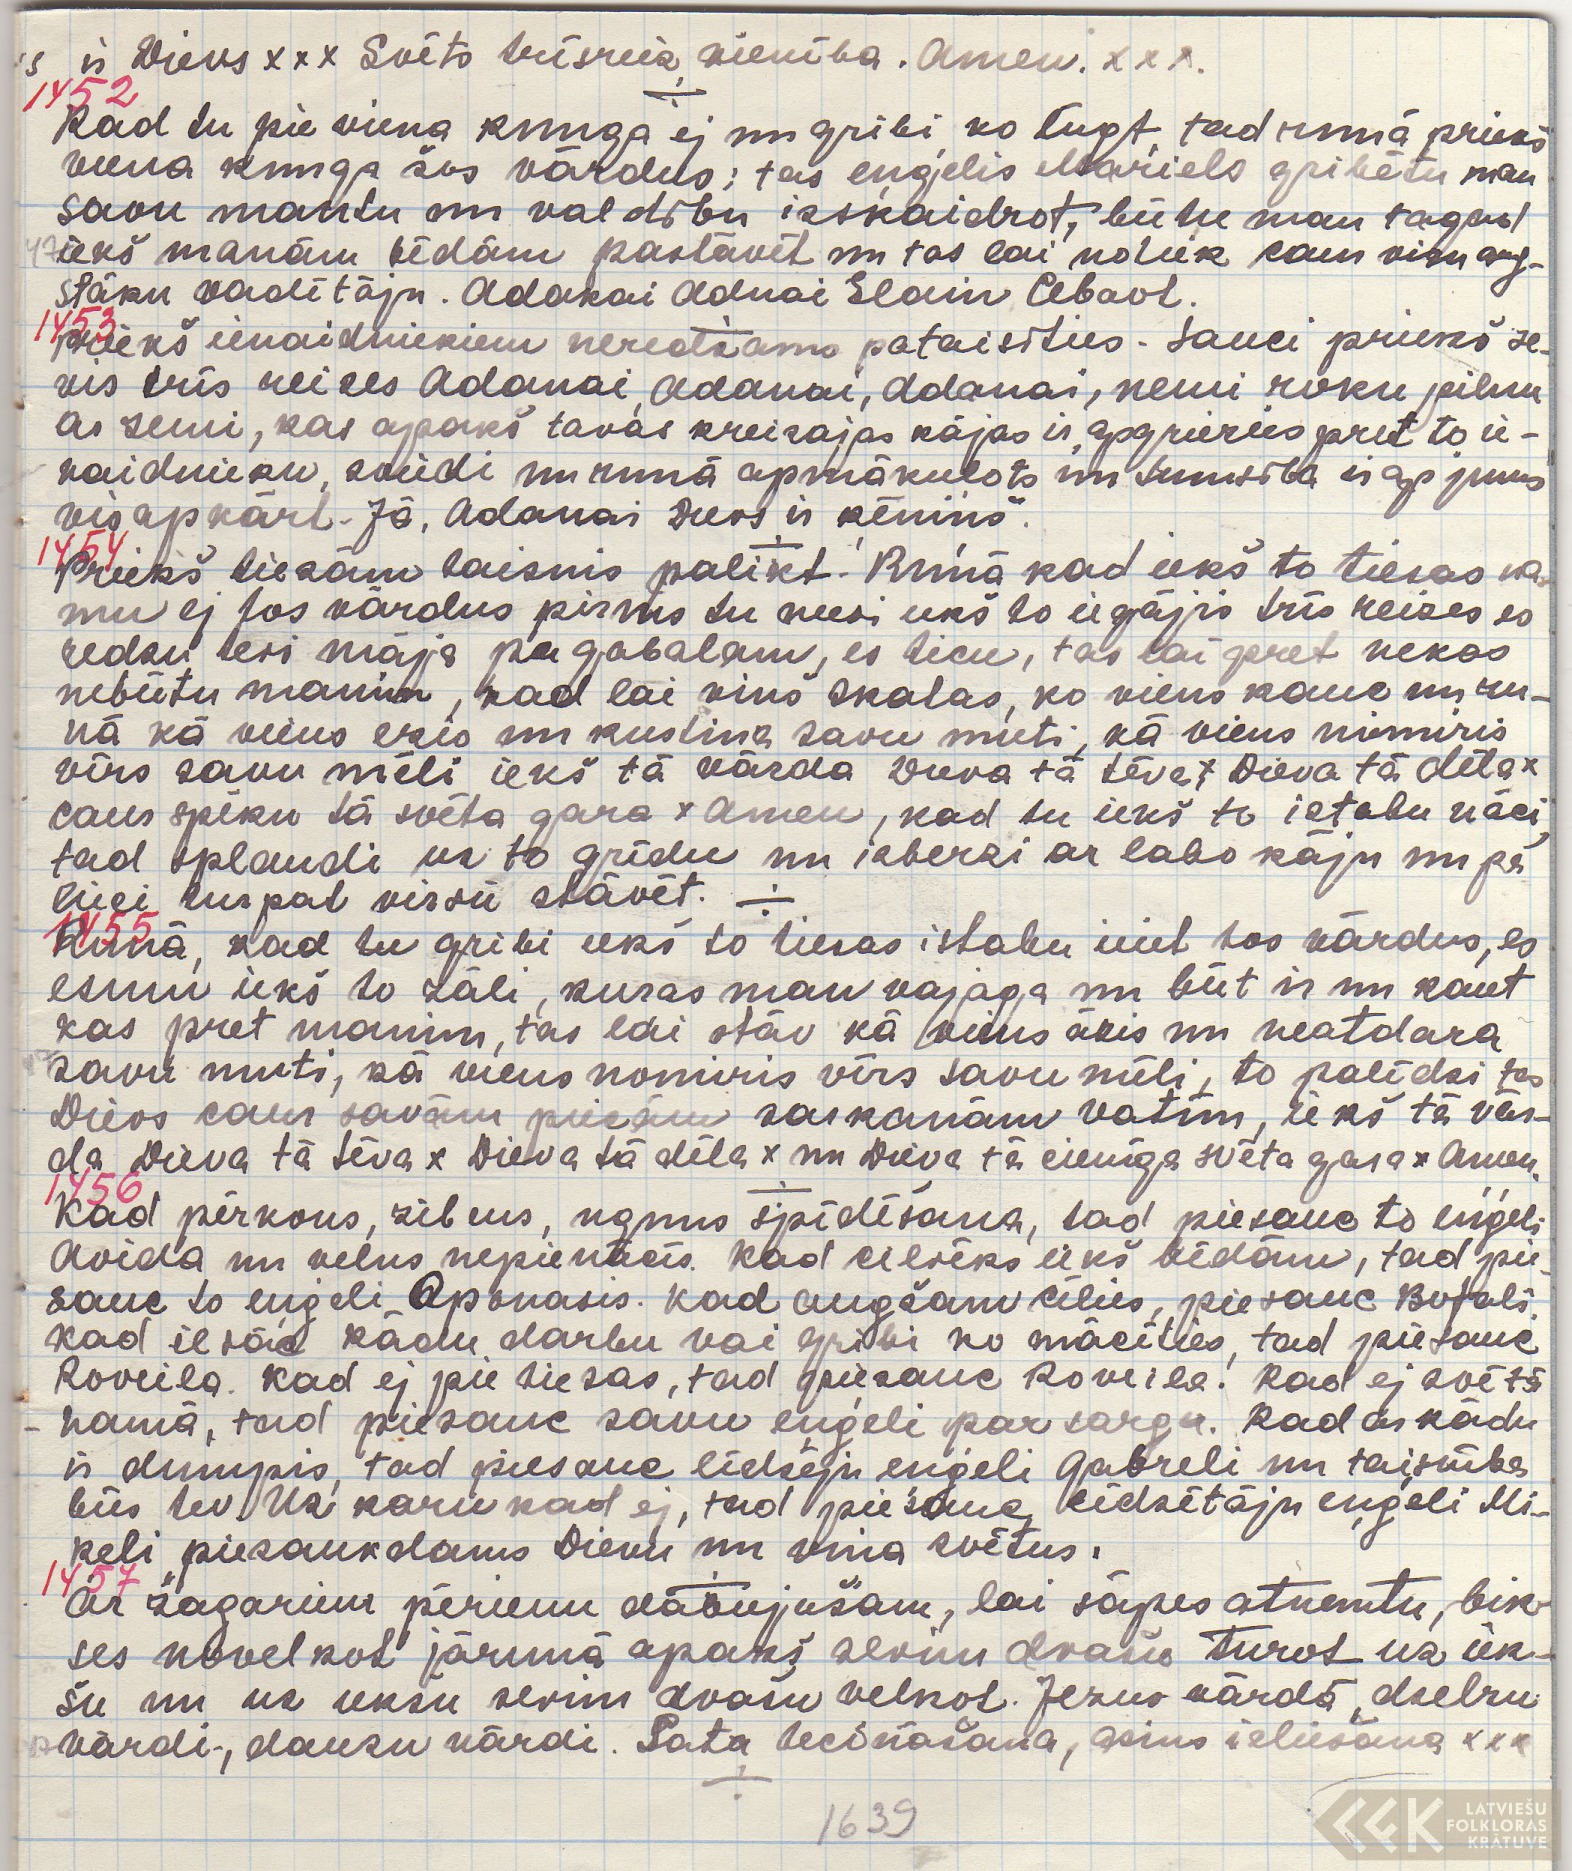 ir Dievs x x x Svēto trīsreiz vienība. Amen. x x x.
1452
Kad tu pie viena kunga ej un gribi ko lugt, tad runā priekš
viena kunga šos vārdus: tas eņģelis Mariels gribētu man
savu mantu un valdību izskaidrot, būtu man tagad
iekš manām bēdām pastāvēt un tas lai notiek caur visu aug-
stāku vadītāju. Adakai Adnai Elain Cebaot.
1453
Priekš ienaidniekiem neredzams pataisīties. Sauci priekš se-
vis trīs reizes Adanai, Adanai, Adanai, ņemi roku pilnu
ar zemi, kas apakš tavas kreisajas kājas ir, apgriezies pret to ie-
naidnieku, sviedi un runā apmākulots un tumsība ir ap jums
vis apkārt. Jā, Adanai Dievs ir ķēniņš.
1454
Priekš tiesām taisnis palikt. Runā kad iekš to tiesas na-
mu ej tos vārdus pirms tu neesi iekš to iegājis trīs reizes es
redzu tevi māja pagabalam, es ticu, tas lai pret nekas
nebūtu manim, kad lai viņš skatas, ko viens kauc un ru-
nā kā viens ezis un kustina savu muti, kā viens nomiris
vīrs savu mēli iekš tā vārda Dieva tā tēva x Dieva tā dēla x
caur spēku tā svēta gara x Amen, kad tu iekš to istabu nāci,
tad splaudi uz to grīdu un izberzi ar labo kāju un pa
lieci turpat virsū stāvēt.
1455
Runā, kad tu gribi iekš to tiesas istabu iiet tos vārdus, es
esmu iekš to zāli, kuras man vajaga un būt ir un kaut
kas pret manim, tas lai stāv kā viens āzis un neatdara
savu muti, kā viens nomiris vīrs savu mēli, to palīdzi tas
Dievs caur savām piecām saskanām vatīm, iekš tā vār-
da Dieva tā tēva x Dieva tā dēla x un Dieva tā cienīga svēta gara x Amen.
1456
Kad pērkons, zibens, uguns spīdēšana, tad piesauc to eņģeli
Avida un velns nepienācīs. Kad cilvēks iekš bēdām, tad pie-
sauc to eņģeli Aponasis. Kad augšam cēlies, piesauc Botali.
Kad iesāc kādu darbu vai gribi ko mācīties, tad piesauc
Roveila. Kad ej pie tiesas, tad piesauc Roveila. Kad ej svētā
namā, tad piesauc savu eņģeli par sargu. Kad ar kādu
ir dumpis, tad piesauc līdzēju eņģeli Gabreli un taisnība
būs tev. Uz karu kad ej, tad piesauc līdzētāju eņģeli Mi-
ķeli piesaukdams Dievu un viņa svētus.
1457
Ar žagariem pērienu dabujušam, lai sāpes atņemtu, bik-
ses novelkot jārunā apakš sevim dvašu turot uz iek-
šu un uz iekšu sevim dvašu velkot. Jezus vārdā, dzelzu
vārdi, dauzu vārdi. Pata tecināšana, asins izliešana x x x
1639
LATVIEŠU
FOLKLORAS
KRĀTUVE